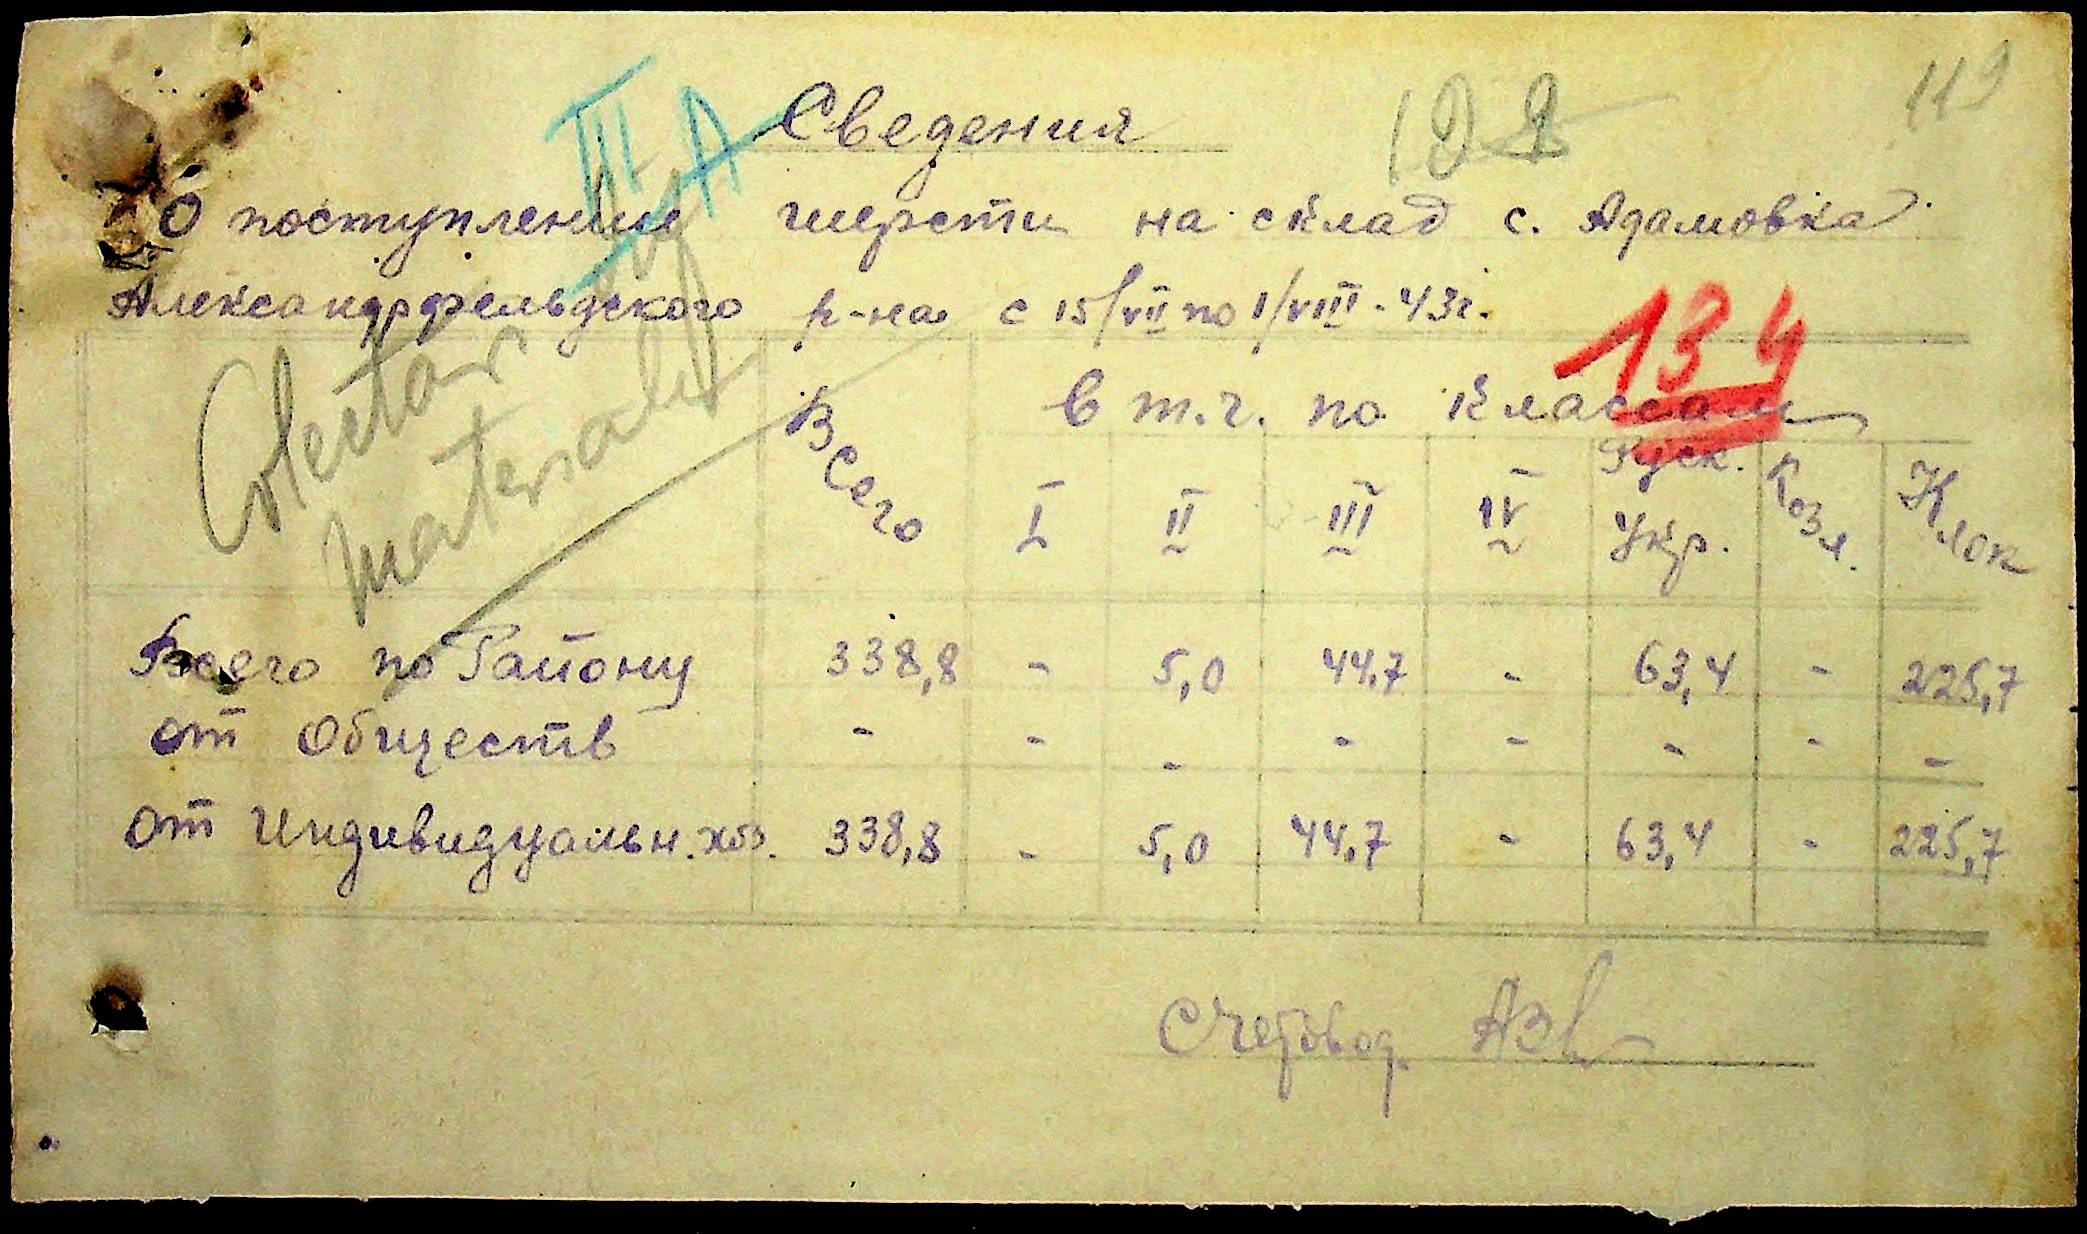 119
Сведения
О поступлении шерсти на склад с. Адамовка
Александрфельдского р-на с 15/VII по 1/VIII-43г.
134
Colectar
material
Всего
в т.ч. по классам
I II III IV Руск. Укр. Козл. Клок
Всего по Району 338,8 - 5,0 44,7 - 63,4 - 225,7
от Обществ - - - - - - - -
от Индивидуальн. хоз. 338,8 - 5,0 44,7 - 63,4 - 225,7
Счетовод